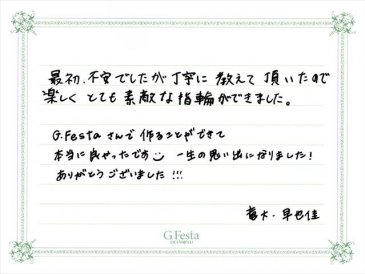 最初、不安でしたが丁寧に教えて頂いたので
楽しくとても素敵な指輪ができました。
G.Festaさんで作ることができて
本当に良かったです 一生の思い出になりました!
ありがとうございました!!!
・早也佳
G.Festa